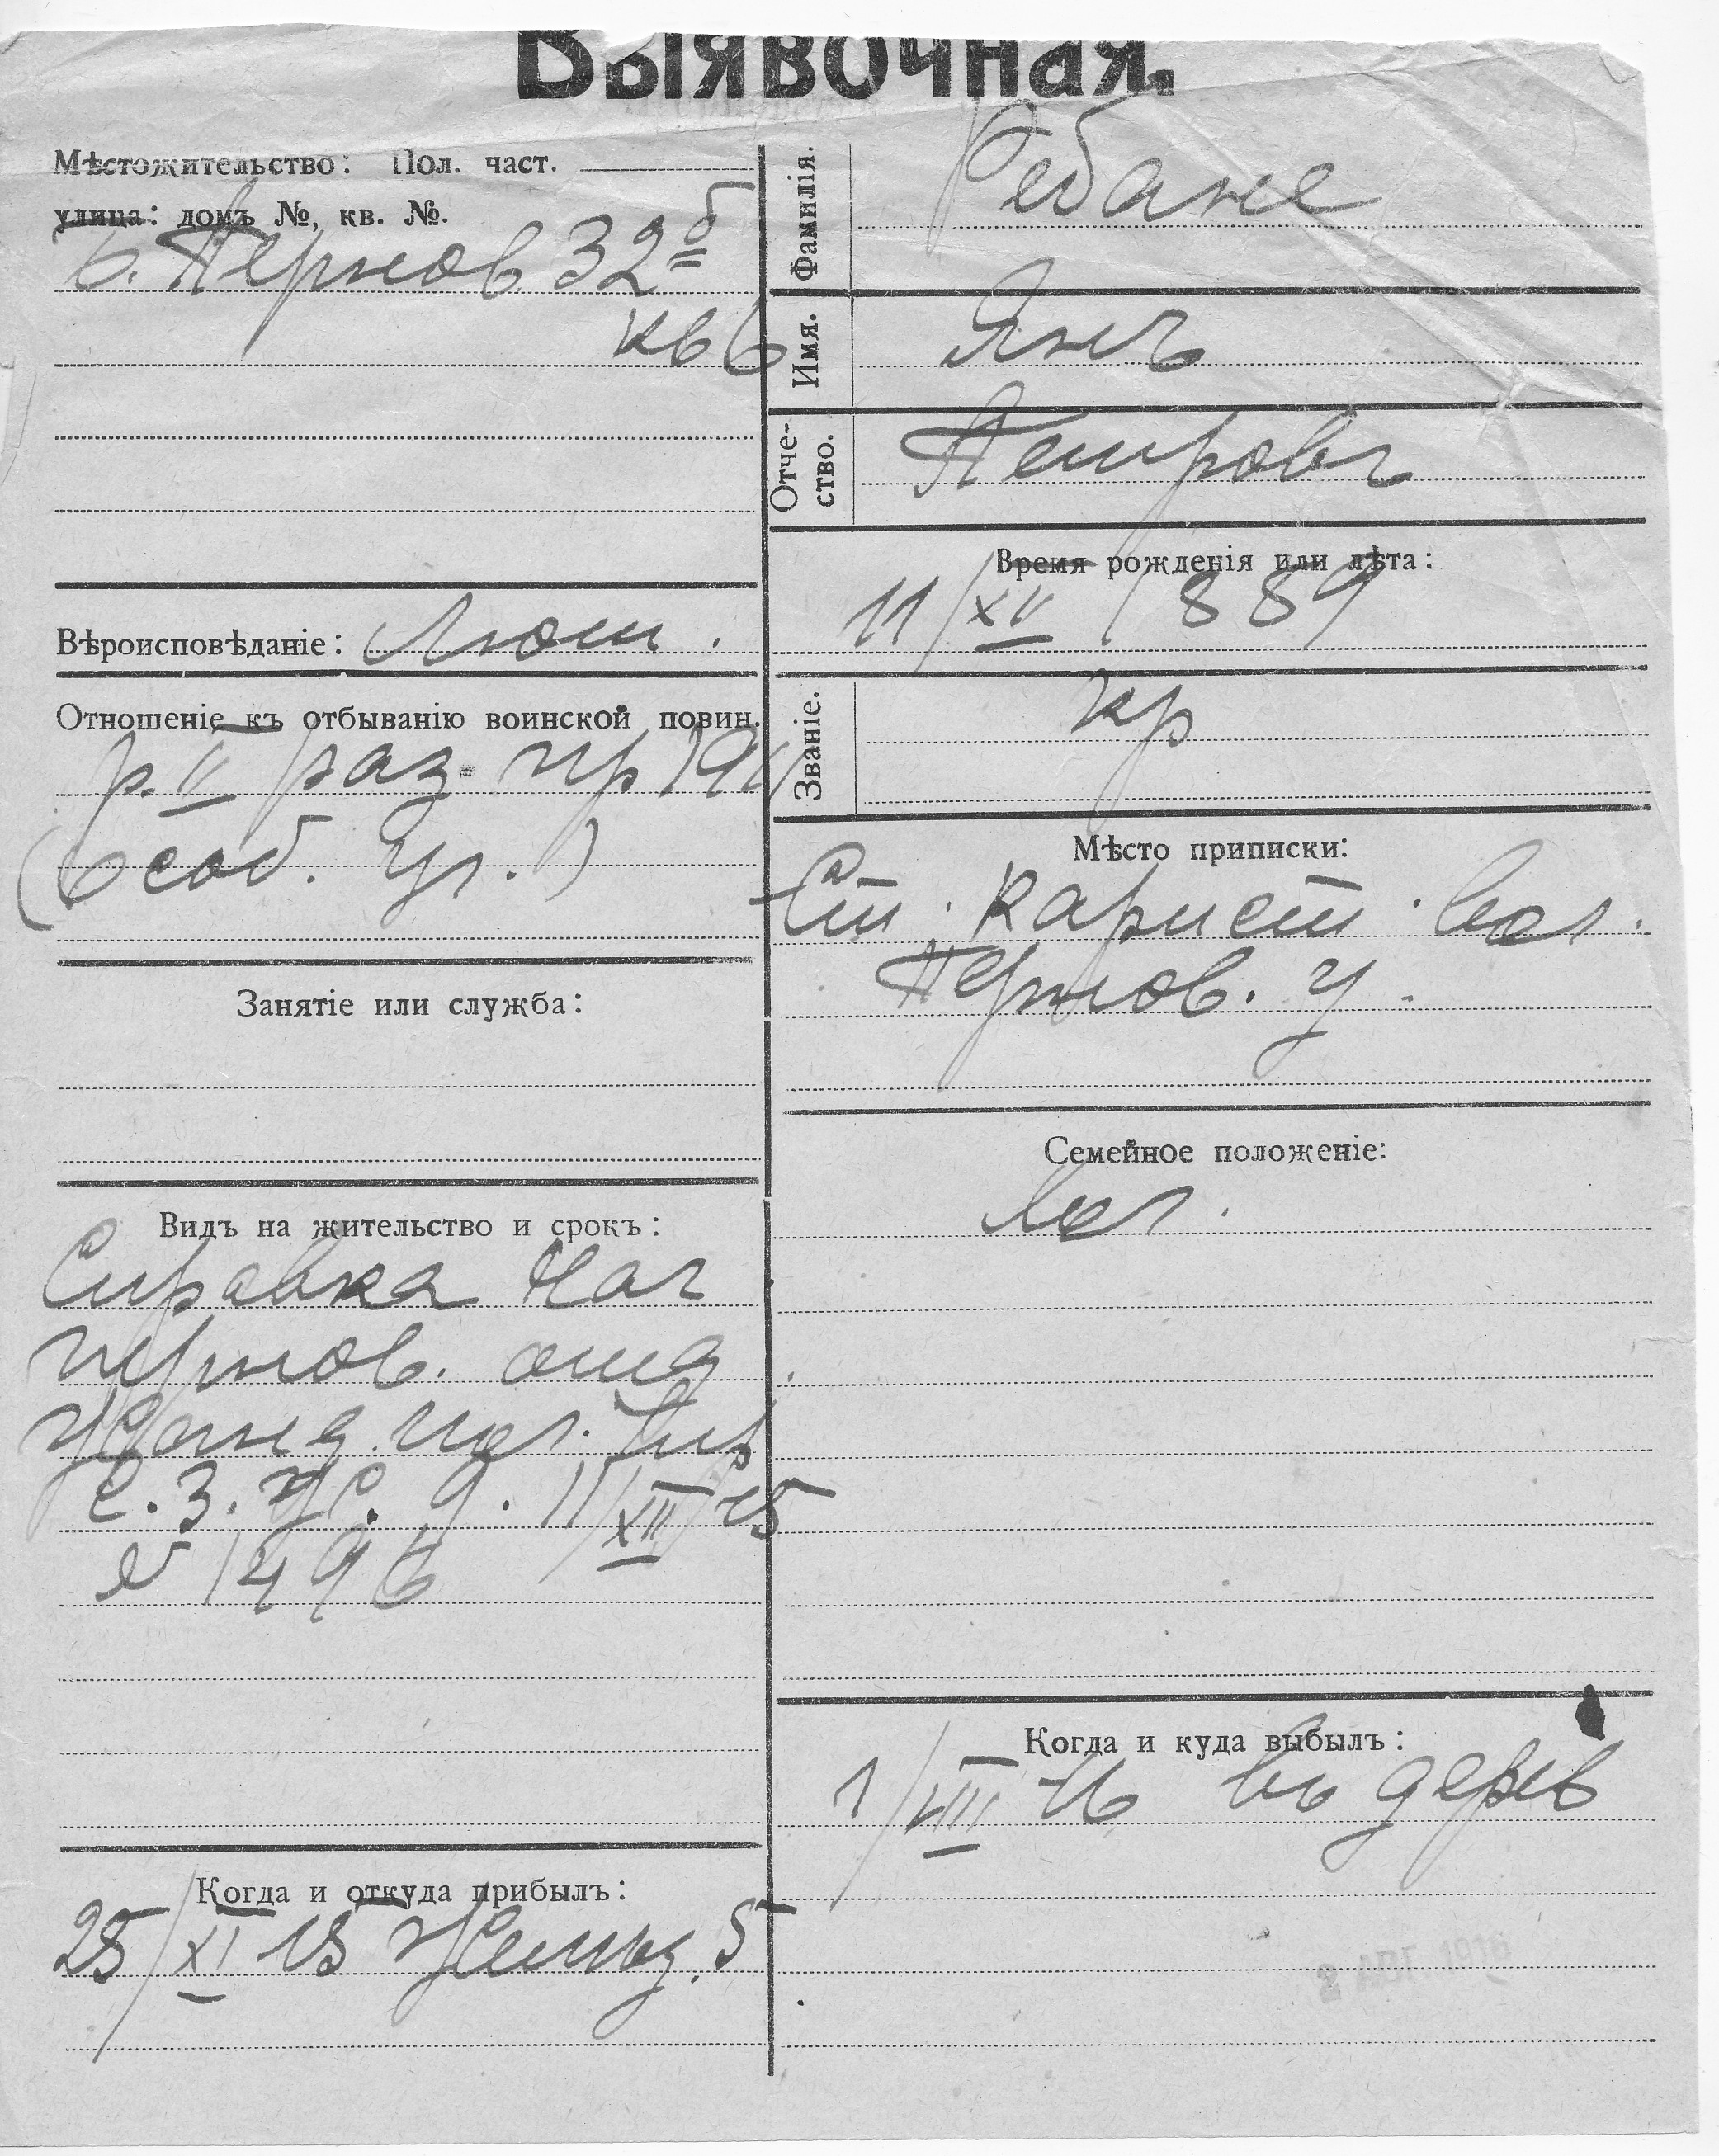 Выявочная.
Мѣстожительство: Пол. част.
улица: домъ №, кв. №.
Б. Пернов 32б
кв 6
Вѣроисповѣданіе: Лют.
Отношеніе къ отбыванію воинской повин.
р. II раз. пр 1911
(Особ. Ул.)
Занятіе или служба:
Видъ на жительство и срокъ:
Справка Нач
пернов. отд
пол.
С.З. 11/XII 15
№ 1496
Когда и откуда прибылъ:
25/XI 15 5
Фамилія. Ребане
Имя. Янъ
Отче-
ство. Петровъ
Время рожденія или лѣта:
11/XII 1889
Званіе. кр
Мѣсто приписки:
Ст. Карист. вол.
Пернов. у.
Семейное положеніе:
хол.
Когда и куда выбылъ:
1/VIII 16 въ дерев
2 АВГ. 1916